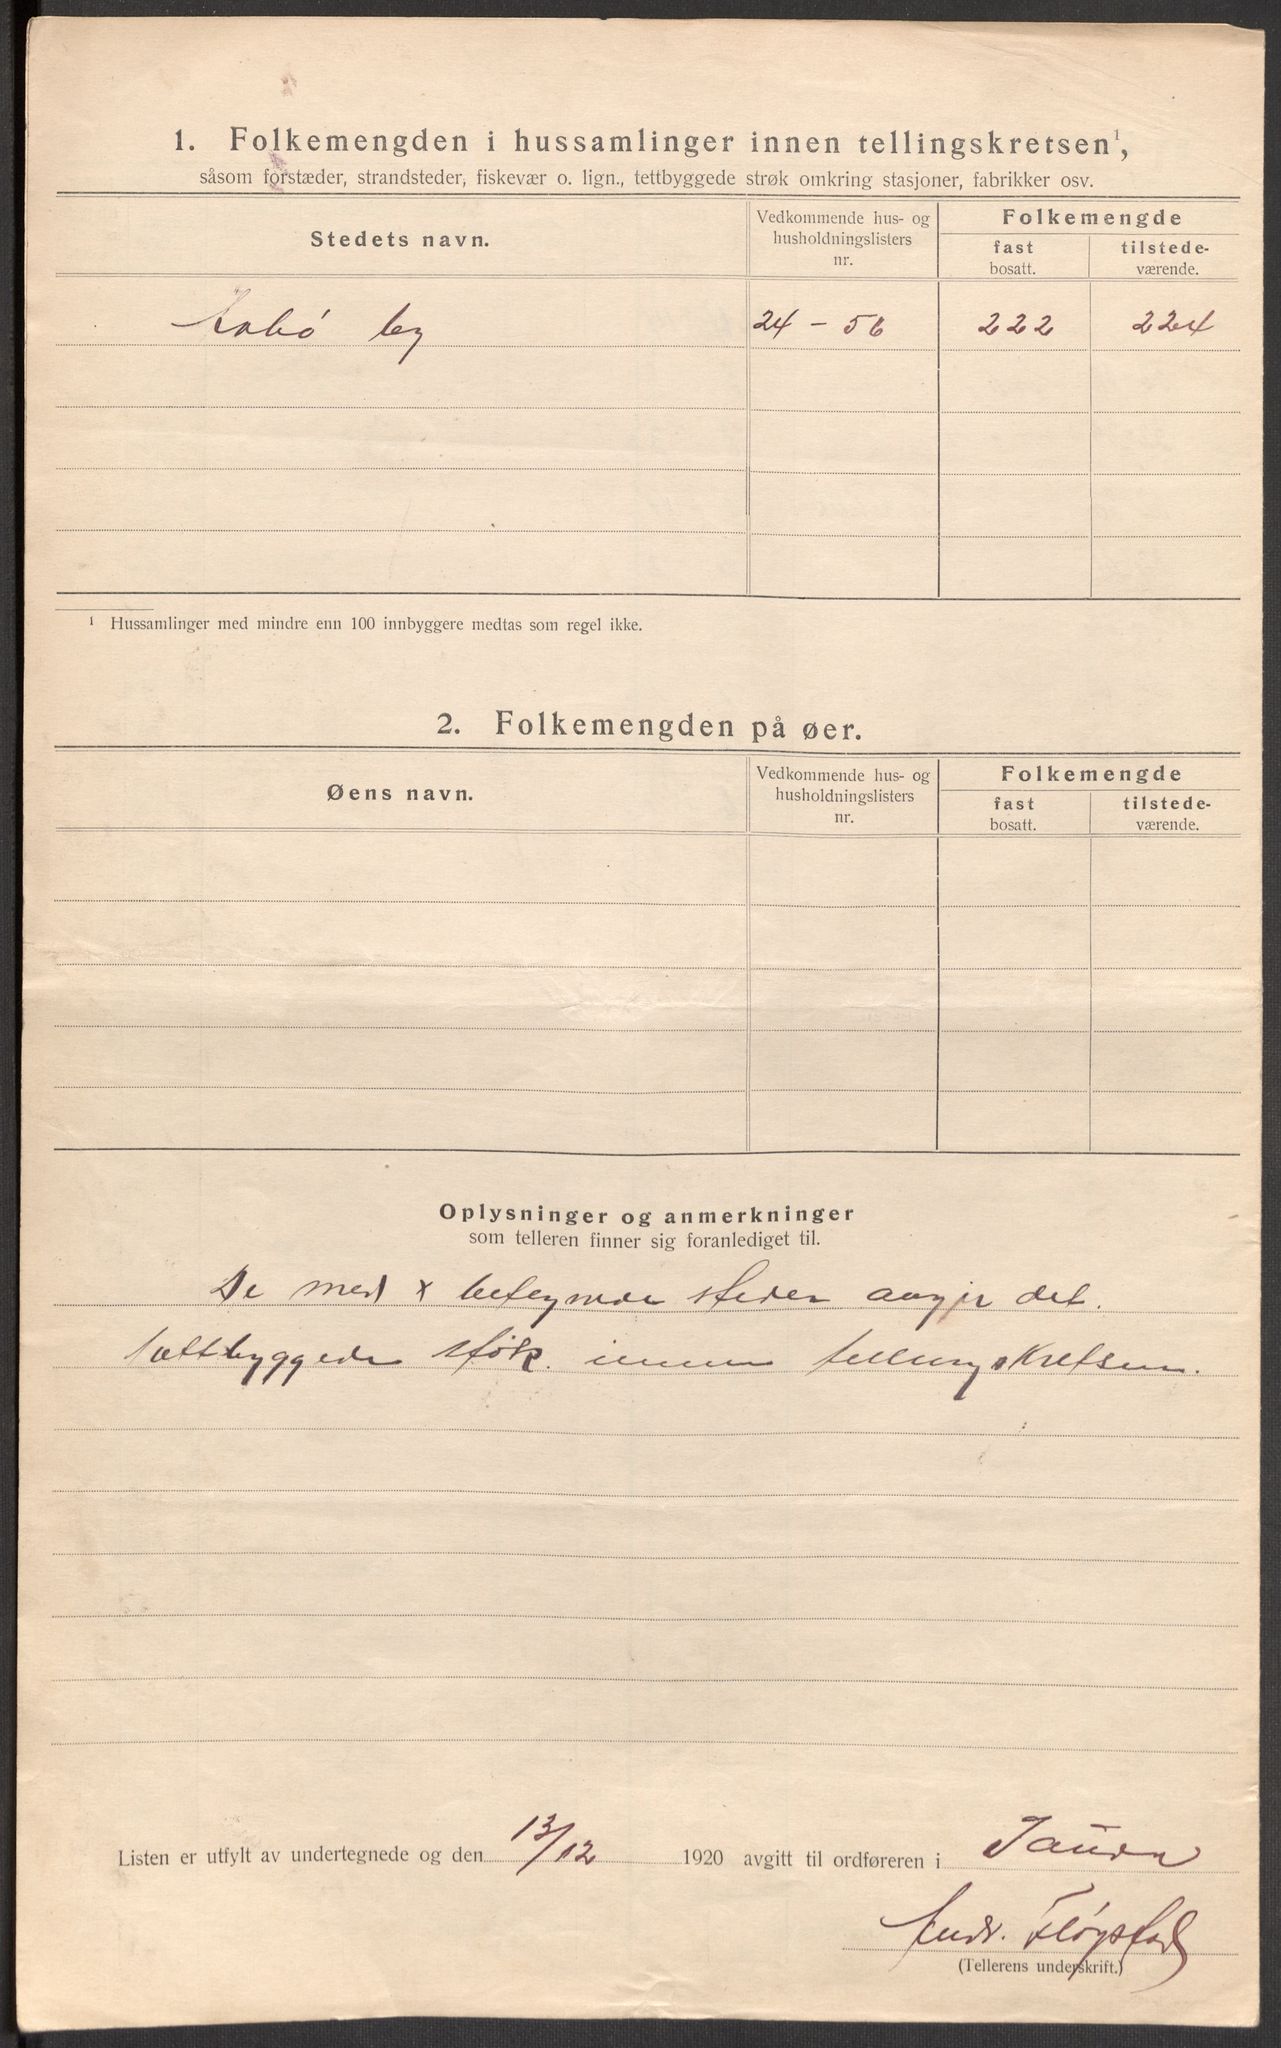 1. Folkemengden i hussamlinger innen tellingskretsen¹,
såsom forstæder, strandsteder, fiskevær o. lign., tettbyggede strøk omkring stasjoner, fabrikker osv.
Stedets navn.
Vedkommende hus- og
husholdningslisters
nr.
Folkemengde
fast
bosatt.
tilstede-
værende.
by 24 - 56 222 224
¹ Hussamlinger med mindre enn 100 innbyggere medtas som regel ikke.
2. Folkemengden på øer.
Øens navn.
Vedkommende hus- og
husholdningslisters
nr.
Folkemengde
fast
bosatt.
tilstede-
værende.
Oplysninger og anmerkninger
som telleren finner sig foranlediget til.
De med x betegnede steder angir det
tættbyggede strøk innen tellingskretsen.
Listen er utfylt av undertegnede og den 13/12 1920 avgitt til ordføreren i Sauda
Andr. Fløgstad
(Tellerens underskrift.)